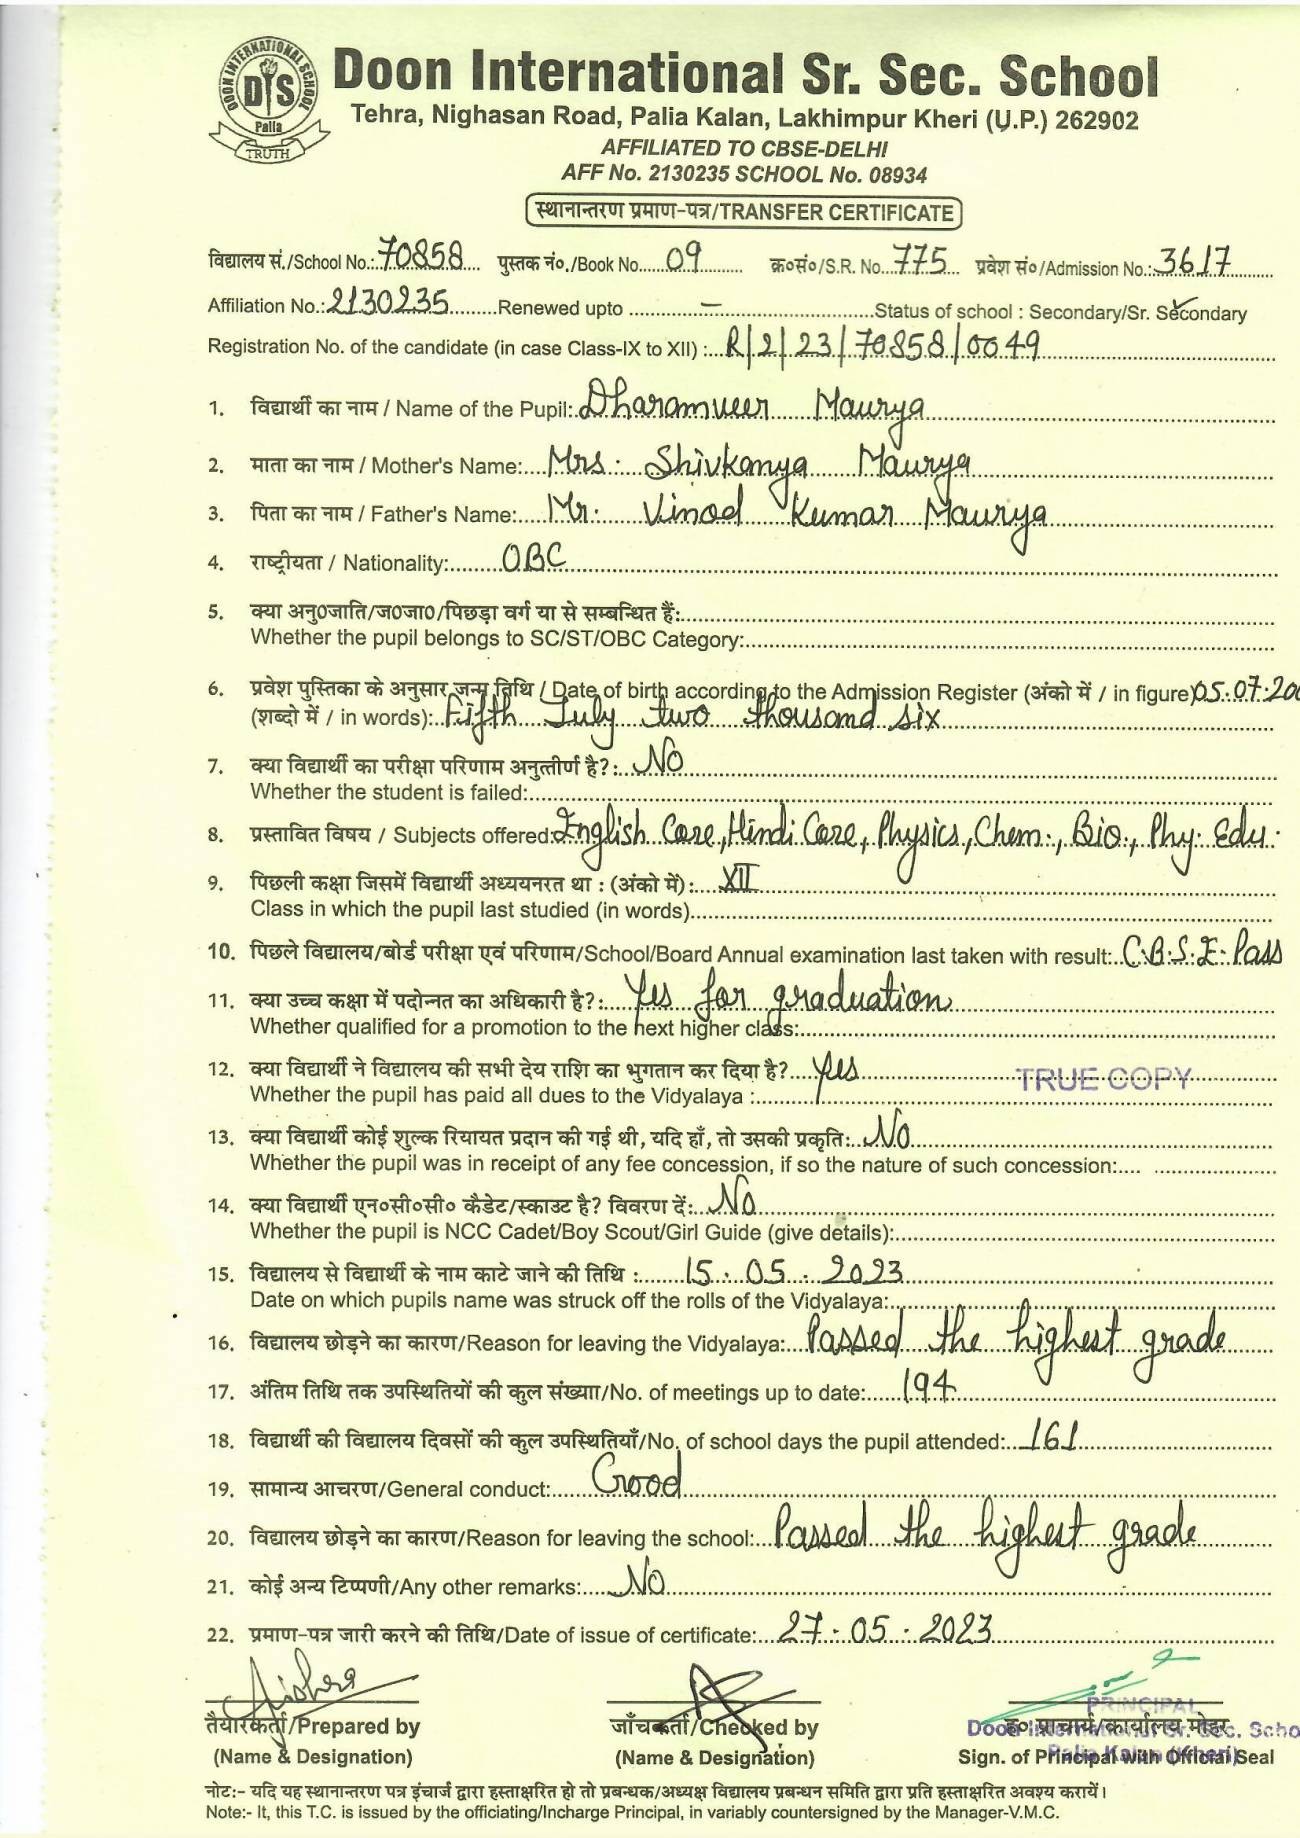 DOON INTERNATIONAL SCHOOL
DIS
Palia
TRUTH
Doon International Sr. Sec. School
Tehra, Nighasan Road, Palia Kalan, Lakhimpur Kheri (U.P.) 262902
AFFILIATED TO CBSE-DELHI
AFF No. 2130235 SCHOOL No. 08934
स्थानान्तरण प्रमाण-पत्र/TRANSFER CERTIFICATE
विद्यालय सं./School No.:70858 पुस्तक नं०./Book No.....09 क्र०सं०/S.R. No.775 प्रवेश सं०/Admission No.:3617
Affiliation No.:2130235 Renewed upto – Status of school : Secondary/Sr. Secondary
Registration No. of the candidate (in case Class-IX to XII) : R/2/23/70858/0049
1. विद्यार्थी का नाम / Name of the Pupil: Dharamveer Maurya
2. माता का नाम / Mother's Name: Mrs. Shivkanya Maurya
3. पिता का नाम / Father's Name: Mr. Vinod Kumar Maurya
4. राष्ट्रीयता / Nationality: OBC
5. क्या अनु0जाति/ज0जा0/पिछड़ा वर्ग या से सम्बन्धित हैं:
Whether the pupil belongs to SC/ST/OBC Category:
6. प्रवेश पुस्तिका के अनुसार जन्म तिथि / Date of birth according to the Admission Register (अंको में / in figure) 05.07.200
(शब्दो में / in words): Fifth July two thousand six
7. क्या विद्यार्थी का परीक्षा परिणाम अनुत्तीर्ण है?: No
Whether the student is failed:
8. प्रस्तावित विषय / Subjects offered: English Core, Hindi Core, Physics, Chem., Bio., Phy. Edu.
9. पिछली कक्षा जिसमें विद्यार्थी अध्ययनरत था : (अंको में): XII
Class in which the pupil last studied (in words)
10. पिछले विद्यालय/बोर्ड परीक्षा एवं परिणाम/School/Board Annual examination last taken with result: C.B.S.E. Pass
11. क्या उच्च कक्षा में पदोन्नत का अधिकारी है?: Yes for graduation
Whether qualified for a promotion to the next higher class:
12. क्या विद्यार्थी ने विद्यालय की सभी देय राशि का भुगतान कर दिया है? Yes
TRUE COPY
Whether the pupil has paid all dues to the Vidyalaya :
13. क्या विद्यार्थी कोई शुल्क रियायत प्रदान की गई थी, यदि हाँ, तो उसकी प्रकृति: No
Whether the pupil was in receipt of any fee concession, if so the nature of such concession:
14. क्या विद्यार्थी एन०सी०सी० कैडेट/स्काउट है? विवरण दें: No
Whether the pupil is NCC Cadet/Boy Scout/Girl Guide (give details):
15. विद्यालय से विद्यार्थी के नाम काटे जाने की तिथि : 15.05.2023
Date on which pupils name was struck off the rolls of the Vidyalaya:
16. विद्यालय छोड़ने का कारण/Reason for leaving the Vidyalaya: Passed the highest grade
17. अंतिम तिथि तक उपस्थितियों की कुल संख्या/No. of meetings up to date: 194
18. विद्यार्थी की विद्यालय दिवसों की कुल उपस्थितियाँ/No. of school days the pupil attended: 161
19. सामान्य आचरण/General conduct: Good
20. विद्यालय छोड़ने का कारण/Reason for leaving the school: Passed the highest grade
21. कोई अन्य टिप्पणी/Any other remarks: No
22. प्रमाण-पत्र जारी करने की तिथि/Date of issue of certificate: 27.05.2023
PRINCIPAL
तैयारकर्ता/Prepared by जाँचकर्ता/Checked by ह० प्राचार्य/कार्यालय मोहर
Doon International Sr. Sec. Scho
Palia Kalan (Kheri)
(Name & Designation) (Name & Designation) Sign. of Principal with Official Seal
नोट:- यदि यह स्थानान्तरण पत्र इंचार्ज द्वारा हस्ताक्षरित हो तो प्रबन्धक/अध्यक्ष विद्यालय प्रबन्धन समिति द्वारा प्रति हस्ताक्षरित अवश्य करायें।
Note:- It, this T.C. is issued by the officiating/Incharge Principal, in variably countersigned by the Manager-V.M.C.